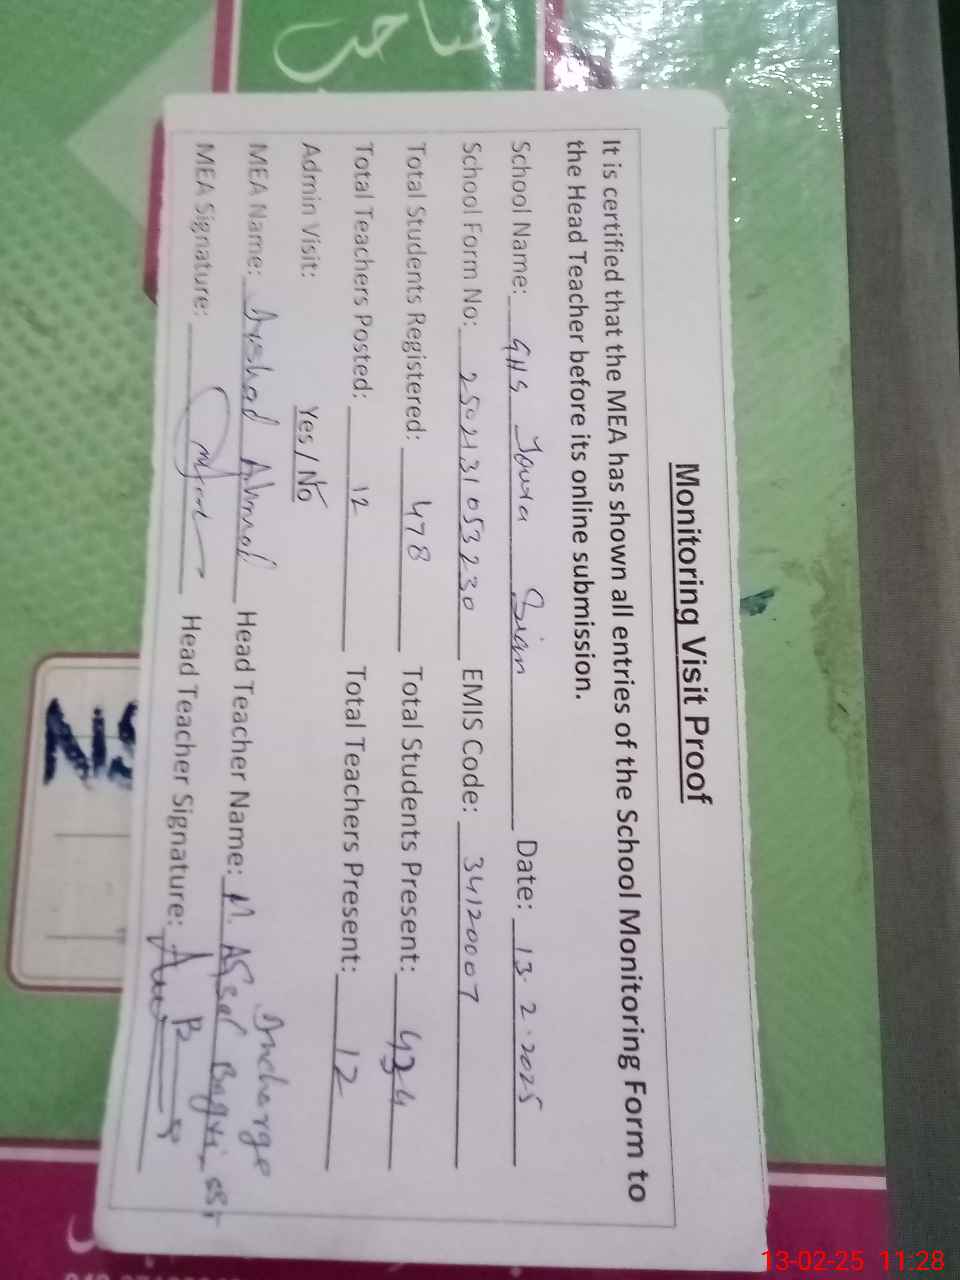 Monitoring Visit Proof
It is certified that the MEA has shown all entries of the School Monitoring Form to
the Head Teacher before its online submission.
School Name: GHS Joura Sian Date: 13.2.2025
School Form No: 2502131053230 EMIS Code: 34120007
Total Students Registered: 478 Total Students Present: 434
Total Teachers Posted: 12 Total Teachers Present: 12
Admin Visit: Yes / No
Incharge
MEA Name: Arshad Ahmad Head Teacher Name: M. Afzal
MEA Signature: Head Teacher Signature:
13-02-25 11:28